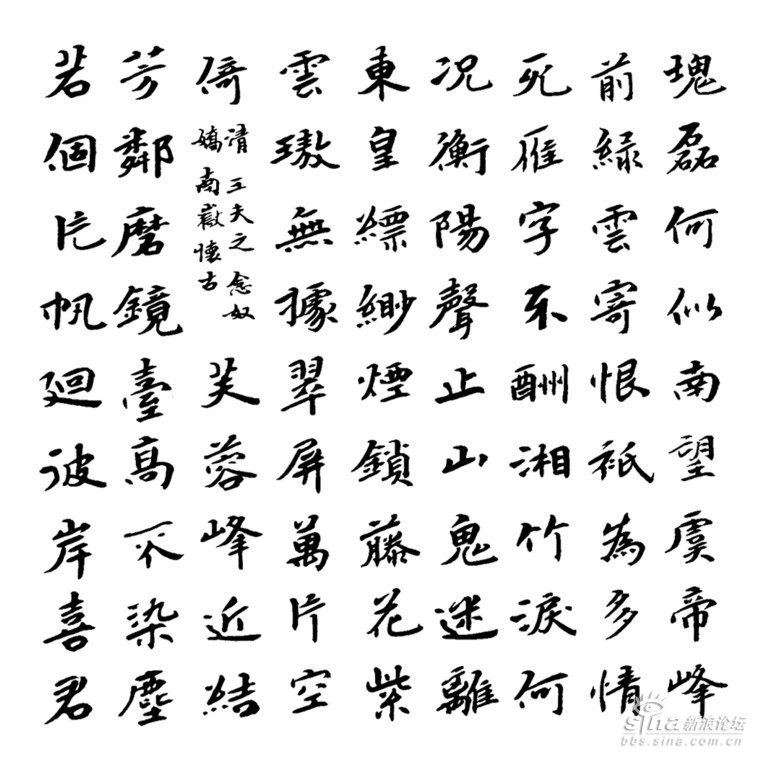 瑰磊何似南望虞帝峰
前緑雲寄恨祇為多情
死雁字不酬湘竹淚何
况衡陽聲止山鬼迷離
東皇縹緲煙鎖藤花紫
雲璈無據翠屏萬片空
倚
清王夫之念奴
嬌南嶽懷古
芙蓉峰近結
芳鄰磨鏡臺高不染塵
若個片帆廻彼岸喜君
sina新浪论坛
bbs.sina.com.cn